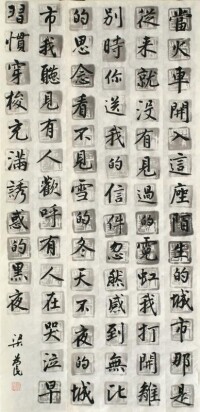 當火車開入這座陌生的城市那是
從來就没有見過的霓虹我打開離
別時你送我的信件忽然感到無比
的思念看不見雪的冬天不夜的城
市我聽見有人歡呼有人在哭泣早
習慣穿梭充滿誘惑的黑夜